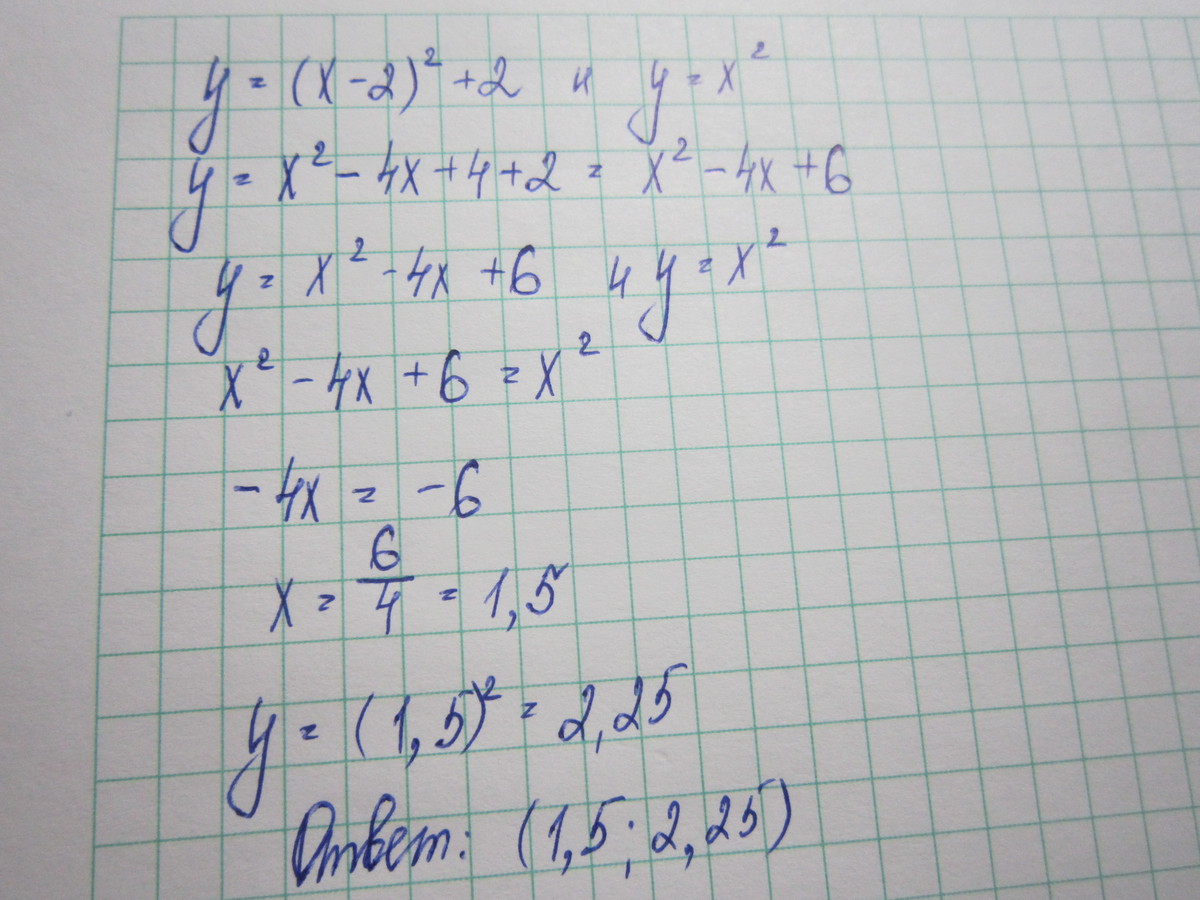 y = (x - 2)² + 2 и y = x²
y = x² - 4x + 4 + 2 = x² - 4x + 6
y = x² - 4x + 6 и y = x²
x² - 4x + 6 = x²
- 4x = - 6
x = 6/4 = 1,5
y = (1,5)² = 2,25
Ответ: (1,5; 2,25)